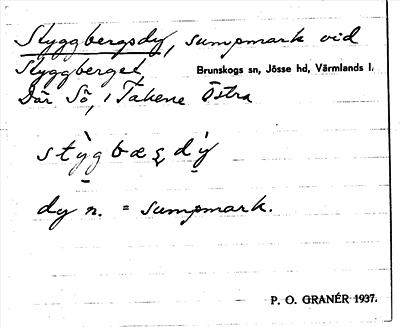 Styggbergsdy, sumpmark vid
Styggberget, Brunskogs sn, Jösse hd, Värmlands l.
Där Sö, i Takene Östra
dy n. = sumpmark.
P. O. GRANÉR 1937.